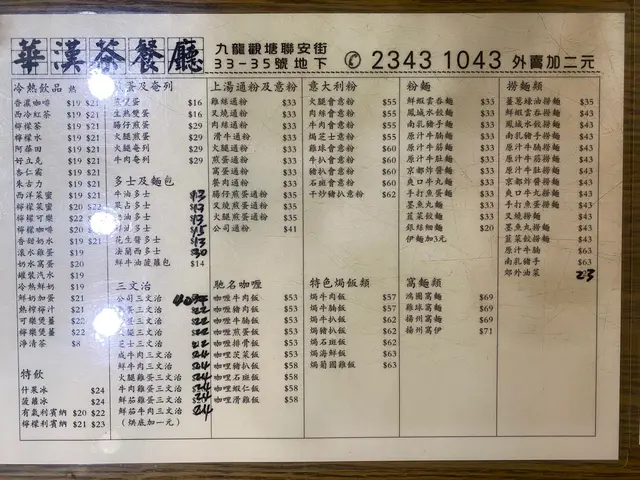 華漢茶餐廳
九龍觀塘聯安街
33-35號地下
✆ 2343 1043 外賣加二元
冷熱飲品 熱
香濃咖啡 $19 $21
西冷紅茶 $19 $21
檸檬茶 $19 $21
檸檬水 $19 $21
阿華田 $19 $21
好立克 $19 $21
杏仁霜 $19 $21
朱古力 $19 $21
西洋菜蜜 $19 $21
檸檬菜蜜 $20 $22
檸檬可樂 $22
檸檬咖啡 $20
香甜奶水 $19 $21
滾水雞蛋 $19
奶水窩蛋 $20
罐裝汽水 $19
冷熱鮮奶 $19
鮮奶加蛋 $21
熱檸檬汁 $21
可樂煲薑 $22
檸樂煲薑 $22
淨清茶 $8
特飲
什果冰 $24
菠蘿冰 $24
有氣利賓納 $20 $22
檸檬利賓納 $21 $23
蛋及奄列
$16
生熟雙蛋 $16
腸仔煎蛋 $29
火腿煎蛋 $29
火腿奄列 $29
牛肉奄列 $29
多士及麵包
牛油多士 13
占多士
油多士 13
多士 15
花生醬多士 13
法蘭西多士 20
鮮牛油菠蘿包 $14
三文治
公司三文治
蛋三文治
蛋三文治
三文治
芝士三文治
咸牛肉三文治
火腿雞蛋三文治
牛肉雞蛋三文治
鮮茄雞蛋三文治
鮮茄牛肉三文治
(烘底加一元)
上湯通粉及意粉
雞絲通粉 $33
叉燒通粉 $33
肉絲通粉 $33
滑牛通粉 $33
火腿通粉 $33
煎蛋通粉 $33
窩蛋通粉 $33
餐肉通粉 $33
腸仔煎蛋通粉 $35
叉燒煎蛋通粉 $35
火腿煎蛋通粉 $35
公司通粉 $41
馳名咖喱
咖喱牛肉飯 $53
咖喱豬肉飯 $53
咖喱牛腩飯 $53
咖喱煎蛋飯 $53
咖喱排骨飯 $53
咖喱芫荽飯 $53
咖喱豬扒飯 $58
咖喱石班飯 $58
咖喱蝦仁飯 $58
咖喱滑雞飯 $58
意大利粉
火腿會意粉 $55
肉絲會意粉 $55
牛肉會意粉 $55
焗芝士意粉 $55
雞球會意粉 $60
牛扒會意粉 $60
豬扒會意粉 $60
石班會意粉 $60
干炒豬扒意粉 $62
特色焗飯類
焗牛肉飯 $57
焗牛腩飯 $57
焗牛扒飯 $62
焗豬扒飯 $62
焗石班飯 $62
焗海鮮飯 $63
焗葡國雞飯 $63
粉麵
鮮蝦雲吞麵 $33
鳳城水餃麵 $33
南乳豬手麵 $33
原汁牛腩麵 $33
原汁牛筋麵 $33
原汁牛肚麵 $33
京都炸醬麵 $33
爽口牛丸麵 $33
手打魚蛋麵 $33
墨魚丸麵 $33
韮菜餃麵 $33
銀絲細麵 $20
伊麵加3元
窩麵類
鴻圖窩麵 $69
雞球窩麵 $69
揚州窩麵 $69
揚州窩伊 $71
撈麵類
薑蔥綠油撈麵 $35
鮮蝦雲吞撈麵 $43
鳳城水餃撈麵 $43
南乳豬手撈麵 $43
原汁牛腩撈麵 $43
原汁牛筋撈麵 $43
原汁牛肚撈麵 $43
京都炸醬撈麵 $43
爽口牛丸撈麵 $43
手打魚蛋撈麵 $43
叉燒撈麵 $43
墨魚丸撈麵 $43
韮菜餃撈麵 $43
原汁牛腩 $63
南乳豬手 $63
郊外油菜 23